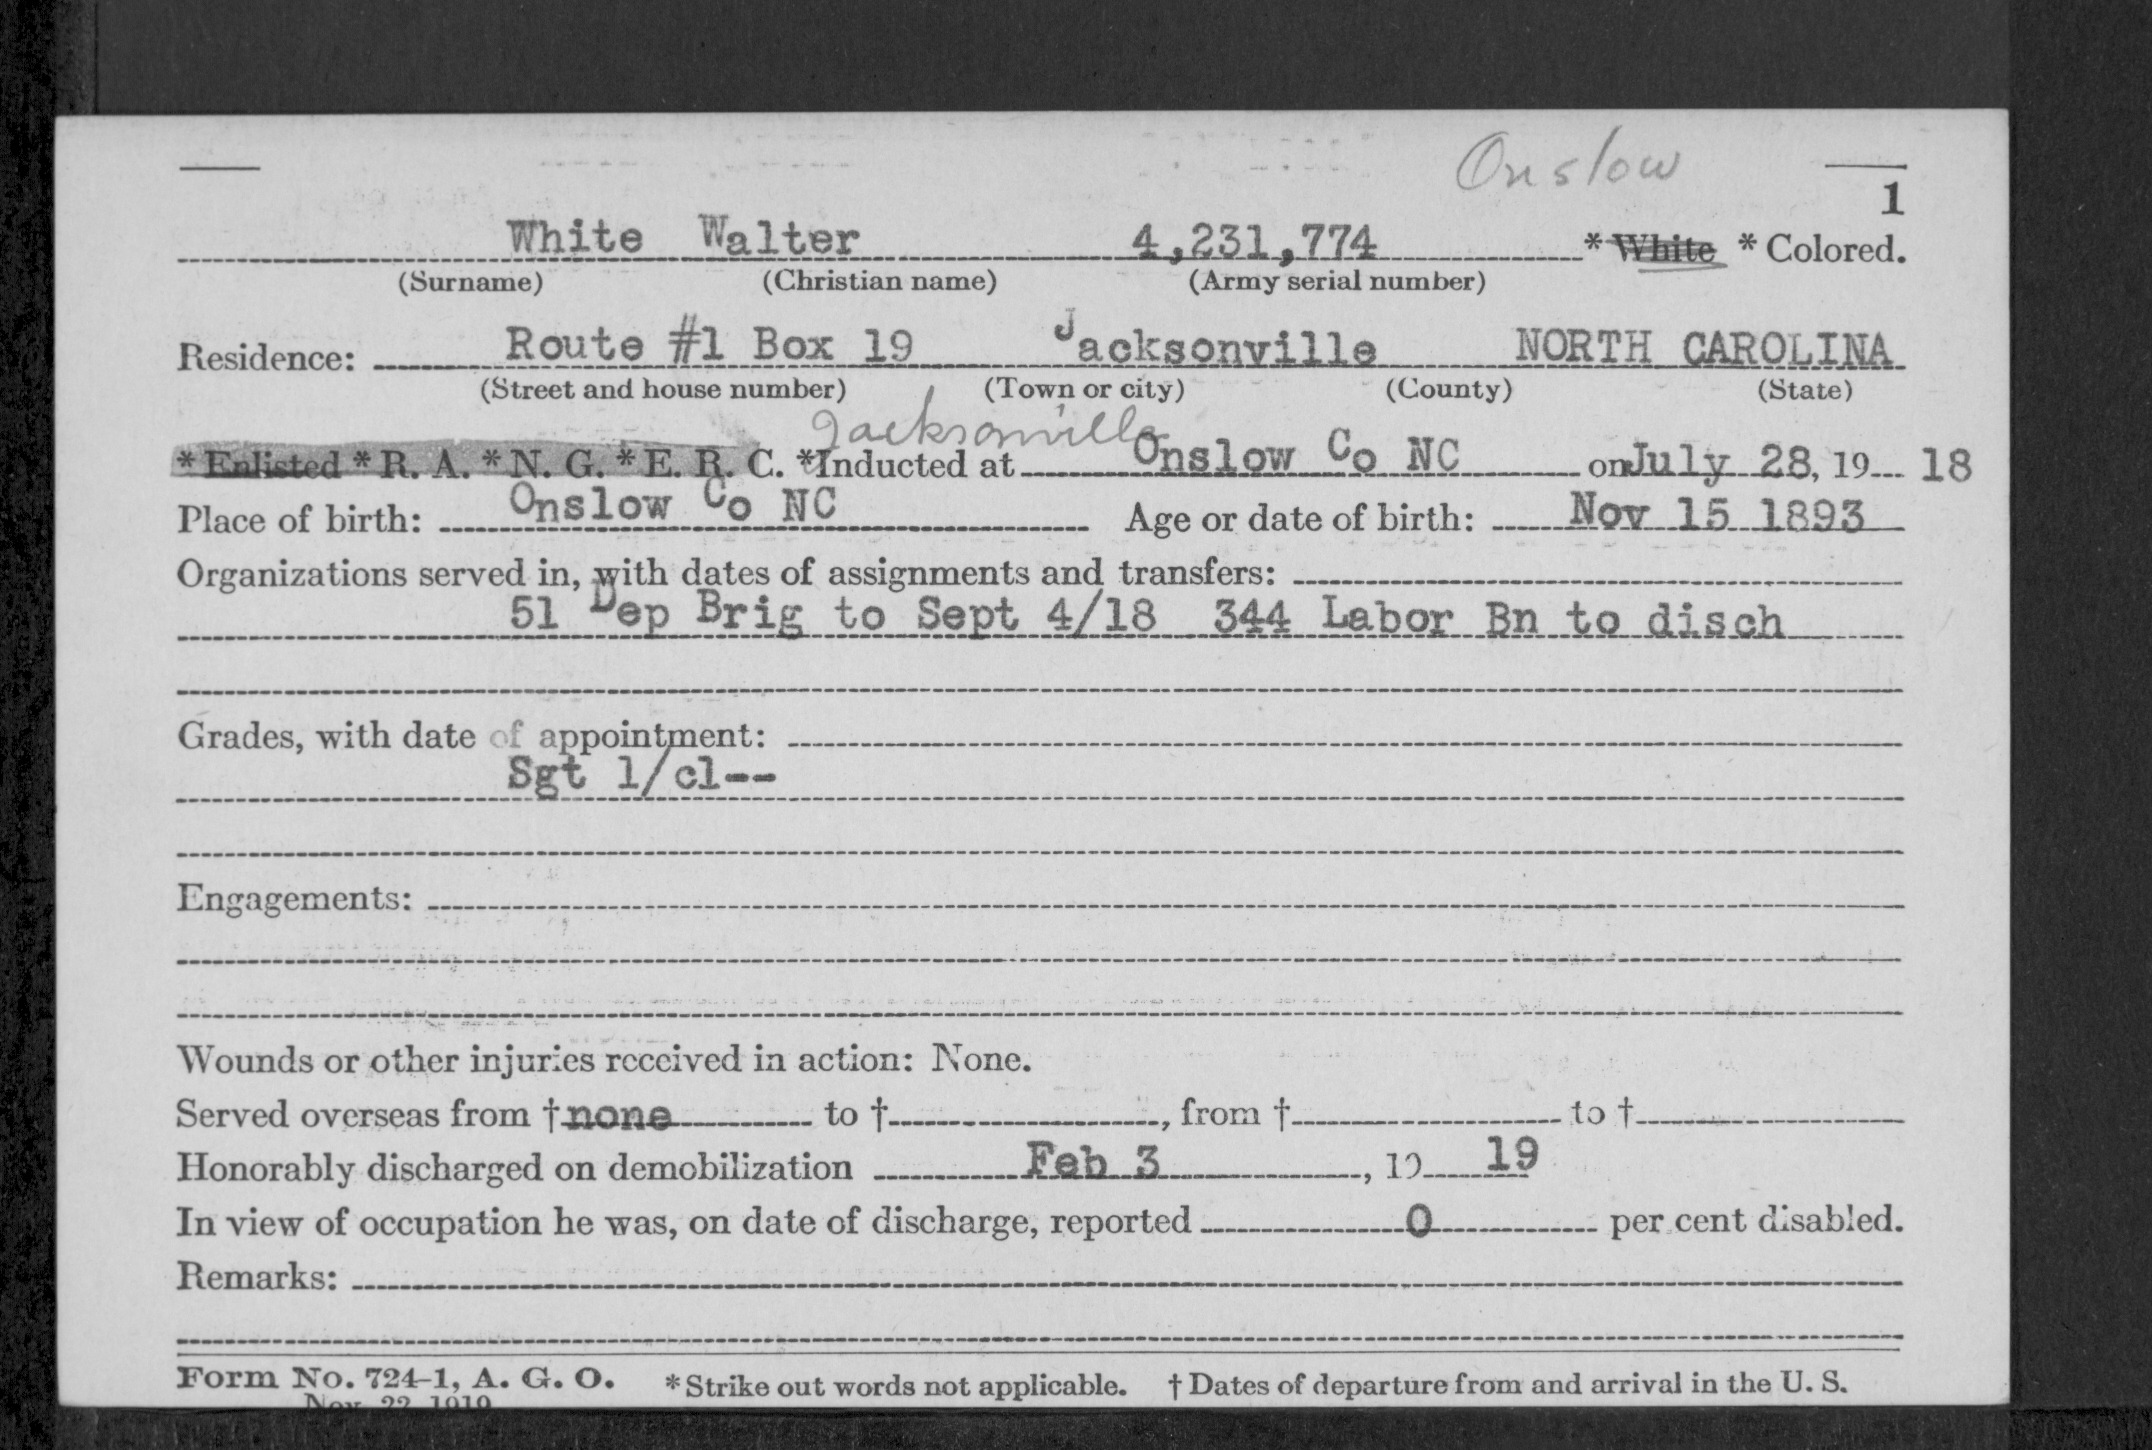 Onslow
1
White Walter 4,231,774 * White * Colored.
(Surname) (Christian name) (Army serial number)
Residence: Route #1 Box 19 Jacksonville NORTH CAROLINA
(Street and house number) (Town or city) (County) (State)
Jacksonville
* Enlisted * R. A. * N. G. * E. R. C. *Inducted at Onslow Co NC on July 28, 19 18
Place of birth: Onslow Co NC Age or date of birth: Nov 15 1893
Organizations served in, with dates of assignments and transfers:
51 Dep Brig to Sept 4/18 344 Labor Bn to disch
Grades, with date of appointment:
Sgt 1/cl--
Engagements:
Wounds or other injuries received in action: None.
Served overseas from † none to †, from † to †
Honorably discharged on demobilization Feb 3, 19 19
In view of occupation he was, on date of discharge, reported 0 per cent disabled.
Remarks:
Form No. 724-1, A. G. O. * Strike out words not applicable. † Dates of departure from and arrival in the U. S.
Nov. 22, 1919